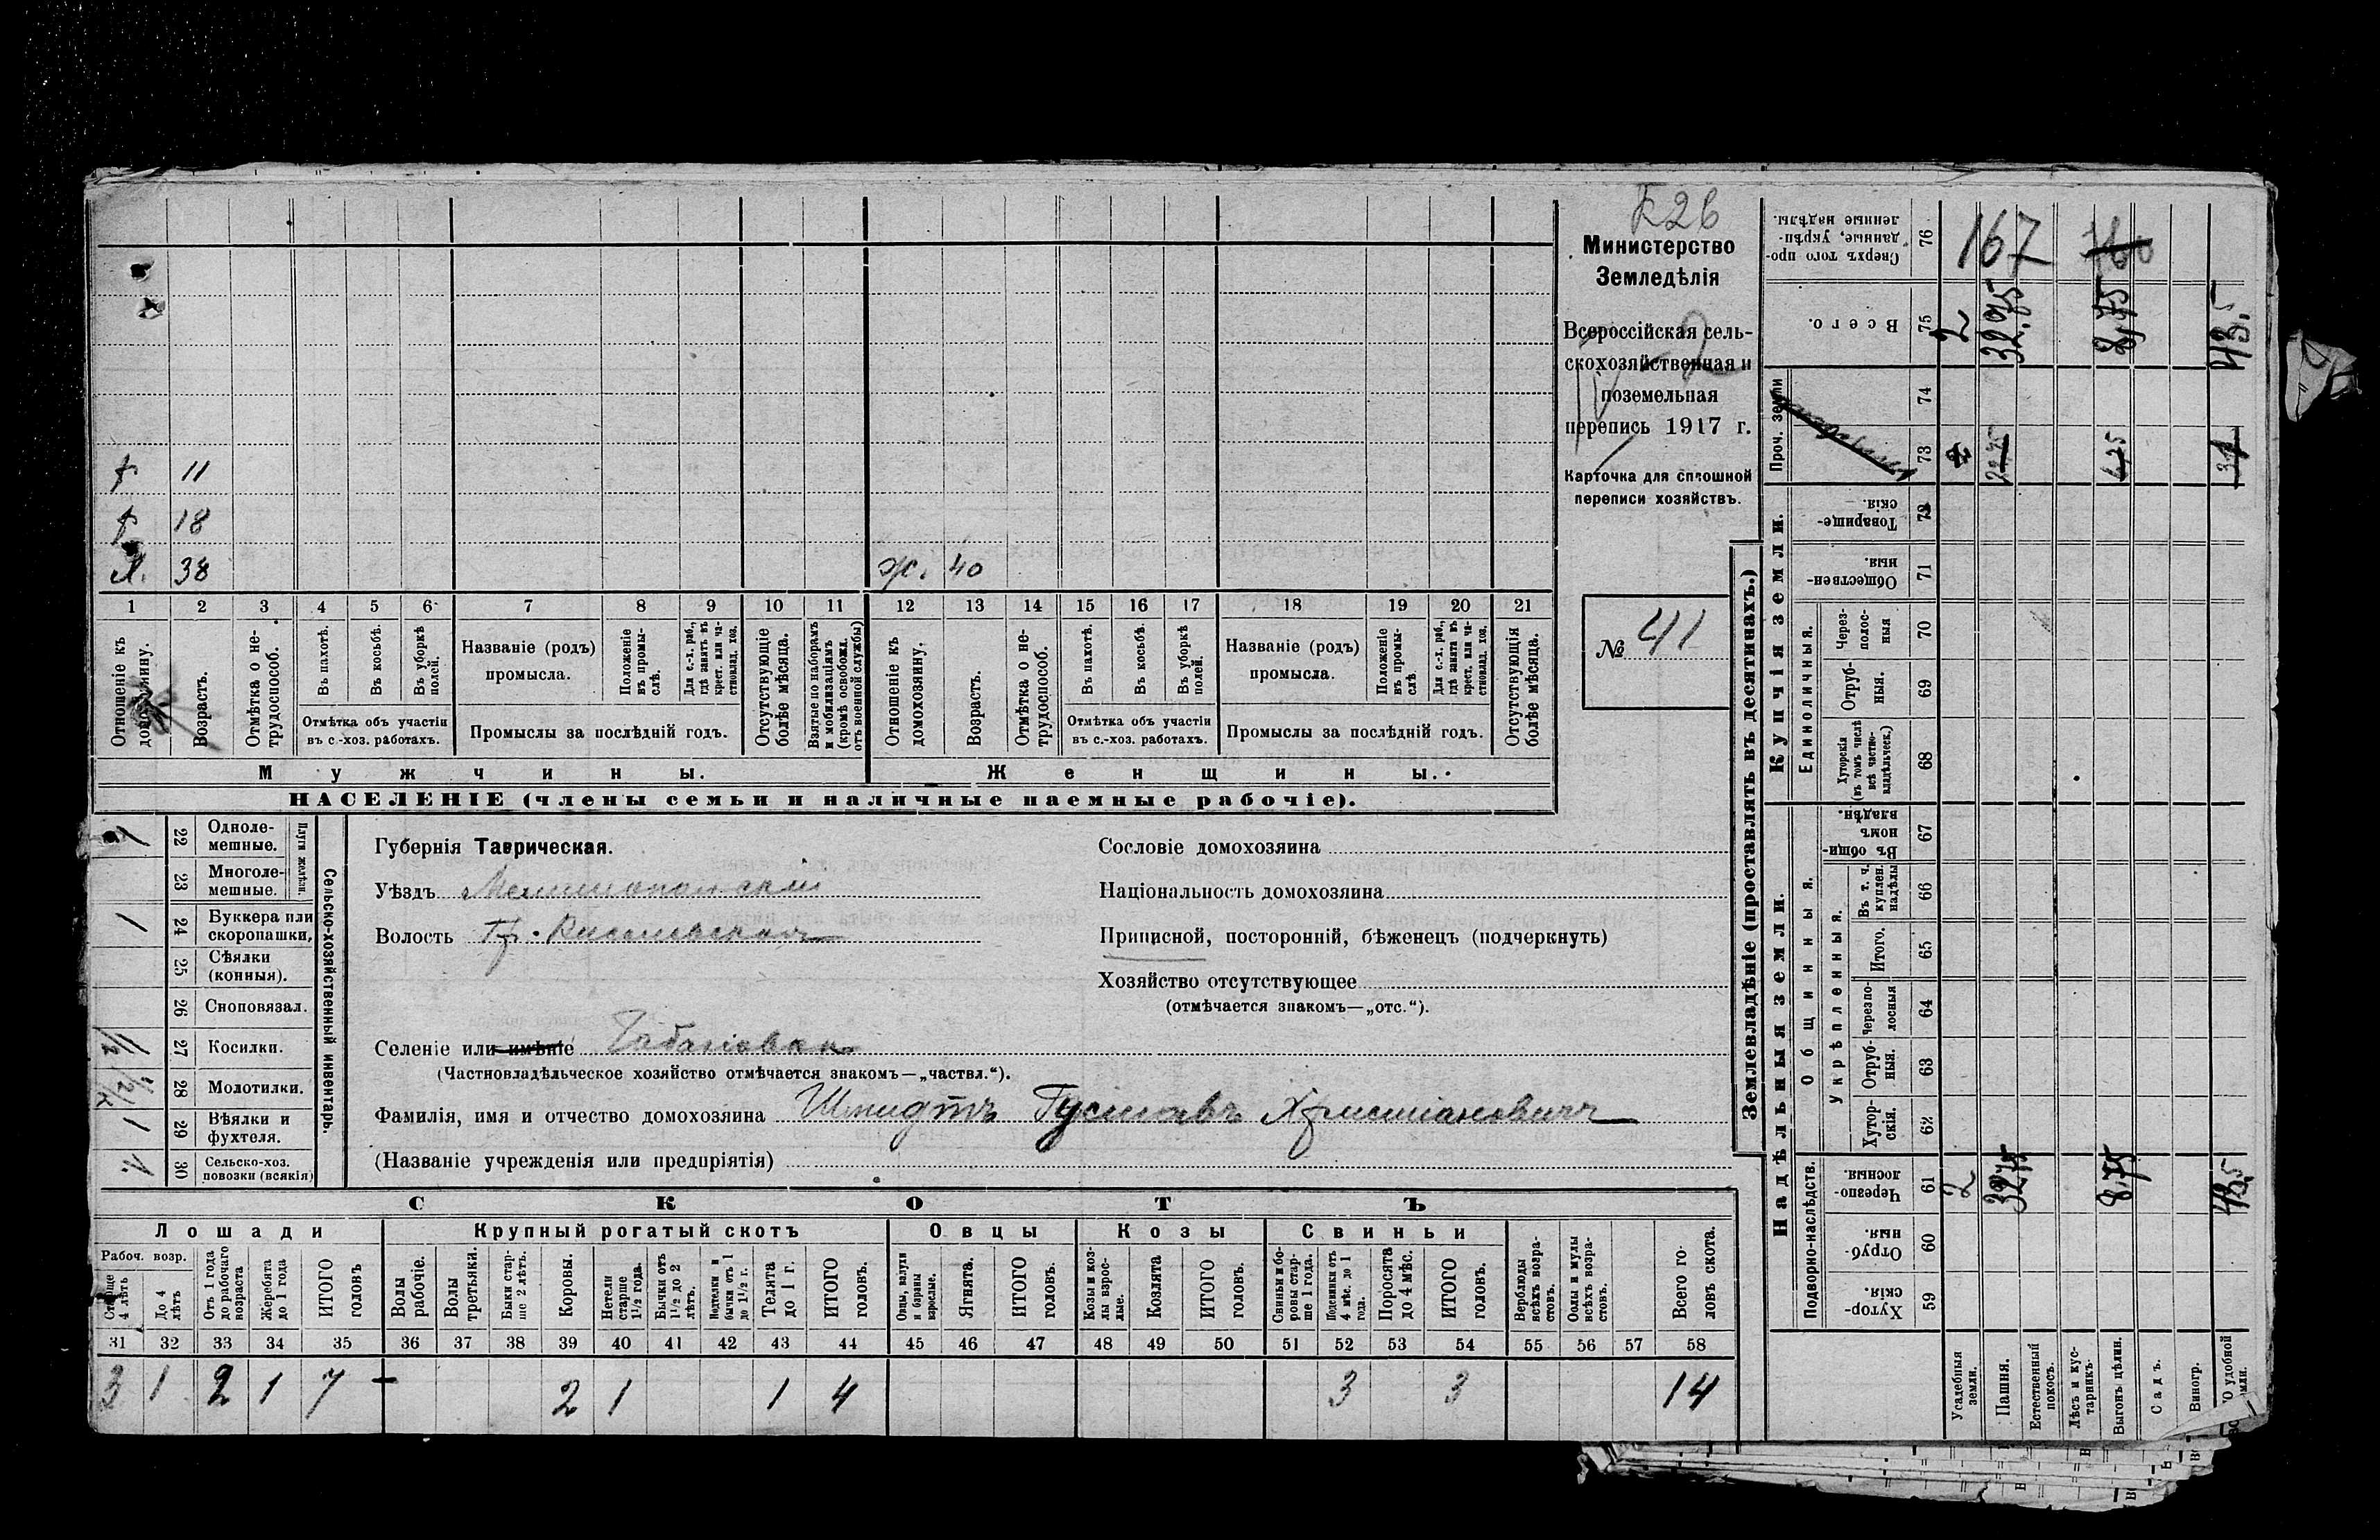 Б26
Министерство
Земледѣлія
Всероссійская сель-
скохозяйственная и
поземельная
перепись 1917 г.
Карточка для сплошной
переписи хозяйствъ.
№ 41
11
18
38
ж. 40
1 2 3 4 5 6 7 8 9 10 11 12 13 14 15 16 17 18 19 20 21
Отношеніе къ домохозяину.
Возрастъ.
Отмѣтка о не-трудоспособ.
Въ пахотѣ.
Въ косьбѣ.
Въ уборкѣ полей.
Отмѣтка объ участіи въ с.-хоз. работахъ.
Названіе (родъ) промысла.
Положеніе въ промы-слѣ.
Для с.-х. раб., гдѣ занятъ въ крест. или ча-стновлад. хоз.
Промыслы за послѣдній годъ.
Отсутствующіе болѣе мѣсяца.
Взятые по наборамъ и мобилизаціямъ (кромѣ освобожд. отъ военной службы)
Отношеніе къ домохозяину.
Возрастъ.
Отмѣтка о не-трудоспособ.
Въ пахотѣ.
Въ косьбѣ.
Въ уборкѣ полей.
Отмѣтка объ участіи въ с.-хоз. работахъ.
Названіе (родъ) промысла.
Положеніе въ промы-слѣ.
Для с.-х. раб., гдѣ занята въ крест. или ча-стновлад. хоз.
Промыслы за послѣдній годъ.
Отсутствующія болѣе мѣсяца.
Мужчины. Женщины.
НАСЕЛЕНІЕ (члены семьи и наличные наемные рабочіе).
Сельско-хозяйственный инвентарь.
Плуги желѣзн.
1 22 Одноле-мешные.
23 Многоле-мешные.
1 24 Буккера или скоропашки,
25 Сѣялки (конныя).
26 Сноповязал.
1/2 27 Косилки.
1/2 28 Молотилки.
1 29 Вѣялки и фухтеля.
1. 30 Сельско-хоз. повозки (всякія)
Губернія Таврическая.
Уѣздъ Мелитопольскій
Волость
Сословіе домохозяина
Національность домохозяина
Приписной, посторонній, бѣженецъ (подчеркнуть)
Хозяйство отсутствующее
(отмѣчается знакомъ—„отс.“).
Селеніе или имѣніе
(Частновладѣльческое хозяйство отмѣчается знакомъ—„частвл.“).
Фамилія, имя и отчество домохозяина Шмидтъ Густавъ Христіановичъ
(Названіе учрежденія или предпріятія)
СКОТЪ
Лошади Крупный рогатый скотъ Овцы Козы Свиньи
Рабоч. возр.
Старше 4 лѣтъ
До 4 лѣтъ
Отъ 1 года до рабочаго возраста
Жеребята до 1 года
ИТОГО головъ
Волы рабочіе.
Волы третьяки.
Быки стар-ше 2 лѣтъ.
Коровы.
Нетели старше 1½ года.
Бычки отъ 1½ до 2 лѣтъ.
Подтелки и бычки отъ 1 до 1½ г.
Телята до 1 г.
ИТОГО головъ.
Овцы, валухи и бараны взрослые.
Ягнята.
ИТОГО головъ.
Козы и коз-лы взрос-лые.
Козлята
ИТОГО головъ.
Свиньи и бо-ровы стар-ше 1 года.
Подсвинки отъ 4 мѣс. до 1 года.
Поросята до 4 мѣс.
ИТОГО головъ.
Верблюды всѣхъ возра-стовъ.
Ослы и мулы всѣхъ возра-стовъ.
Всего го-ловъ скота.
31 32 33 34 35 36 37 38 39 40 41 42 43 44 45 46 47 48 49 50 51 52 53 54 55 56 57 58
3 1 2 1 7 – 2 1 1 4 3 3 14
Землевладѣніе (проставлять въ десятинахъ.)
Купчія земли.
Надѣльныя земли.
Сверхъ того про-данные, укрѣп-ленные надѣлы. 76 167 760
Всего. 75 2 32,75 8,75 43,5
Проч. земли
74
73
Товарище-скія. 72
Обществен-ныя. 71
Единоличныя.
Через-полос-ныя 70
Отруб-ныя. 69
Хуторскія (въ томъ числѣ всѣ частно-владѣльческ.) 68
Общинныя.
Въ общи-номъ владѣн. 67
Укрѣпленныя.
Въ т. ч. куплен. надѣлы 66
Итого. 65
Черезпо-лосныя 64
Отруб-ныя. 63
Хутор-скія. 62
Подворно-наслѣдств.
Черезпо-лосныя. 61 2 32,75 8,75 43,5
Отруб-ныя. 60
Хутор-скія. 59
Усадебныя земли.
Пашня.
Естественный покосъ.
Лѣсъ и кус-тарникъ.
Выгонъ цѣлин.
Садъ.
Виногр.